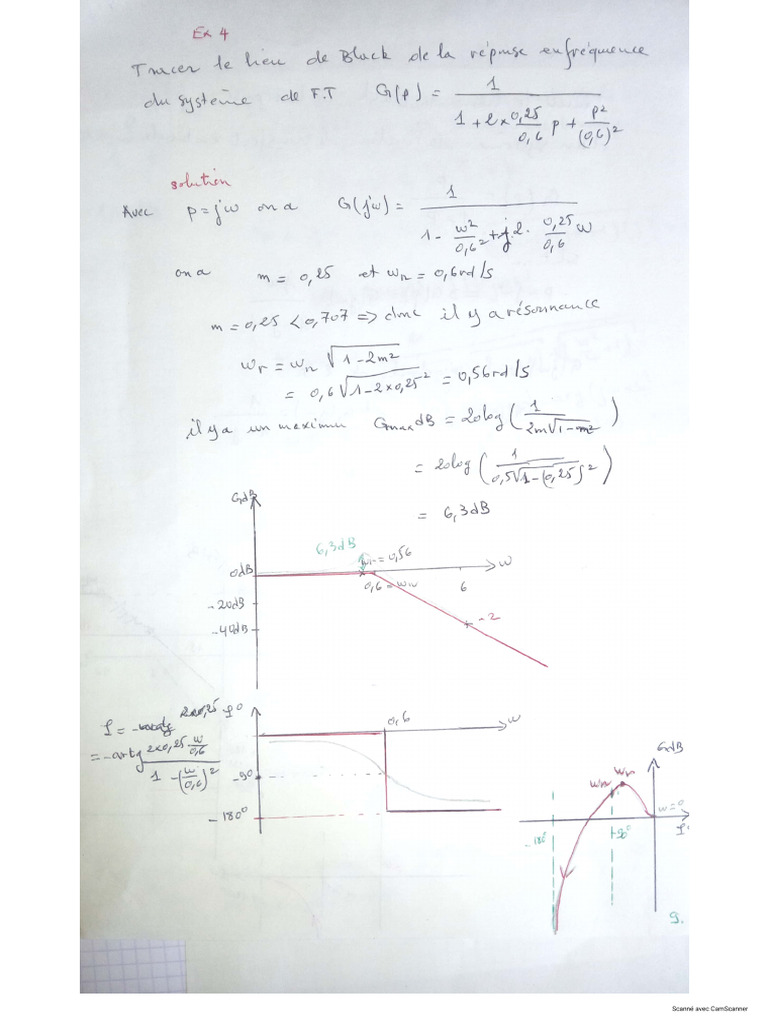 Ex 4
Tracer le lieu de Black de la réponse en fréquence
du système de F.T G(p) = 1 / (1 + 2 × 0,25/0,6 p + p²/(0,6)²)
solution
Avec p = jω on a G(jω) = 1 / (1 - ω²/0,6² + j 2. 0,25/0,6 ω)
on a m = 0,25 et ωn = 0,6 rd/s
m = 0,25 < 0,707 => donc il y a résonnance
ωr = ωn √(1 - 2m²)
= 0,6 √(1 - 2×0,25²) = 0,56 rd/s
il y a un maximu Gmax dB = 20log (1 / (2m√(1 - m²)))
= 20log (1 / (0,5√(1 - (0,25)²)))
= 6,3 dB
GdB
6,3dB
ωr = 0,56
0dB
ω
0,6 = ωn
6
-20dB
-40dB
-2
2×0,25
φ = -
φ°
0,6
ω
= -artg (2×0,25 ω/0,6) / (1 - (ω/0,6)²)
-90°
-180°
GdB
ωn
ωr
ω=0
φ°
-180°
-90°